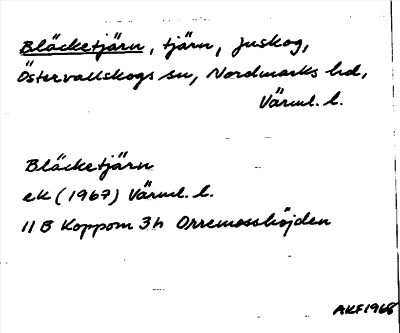 Bläcketjärn, tjärn, Juskog,
Östervallskogs sn, Nordmarks hd,
Värml. l.
Bläcketjärn
ek (1967) Värml. l.
11 B Koppom 3 h Orremosshöjden
AKF 1968